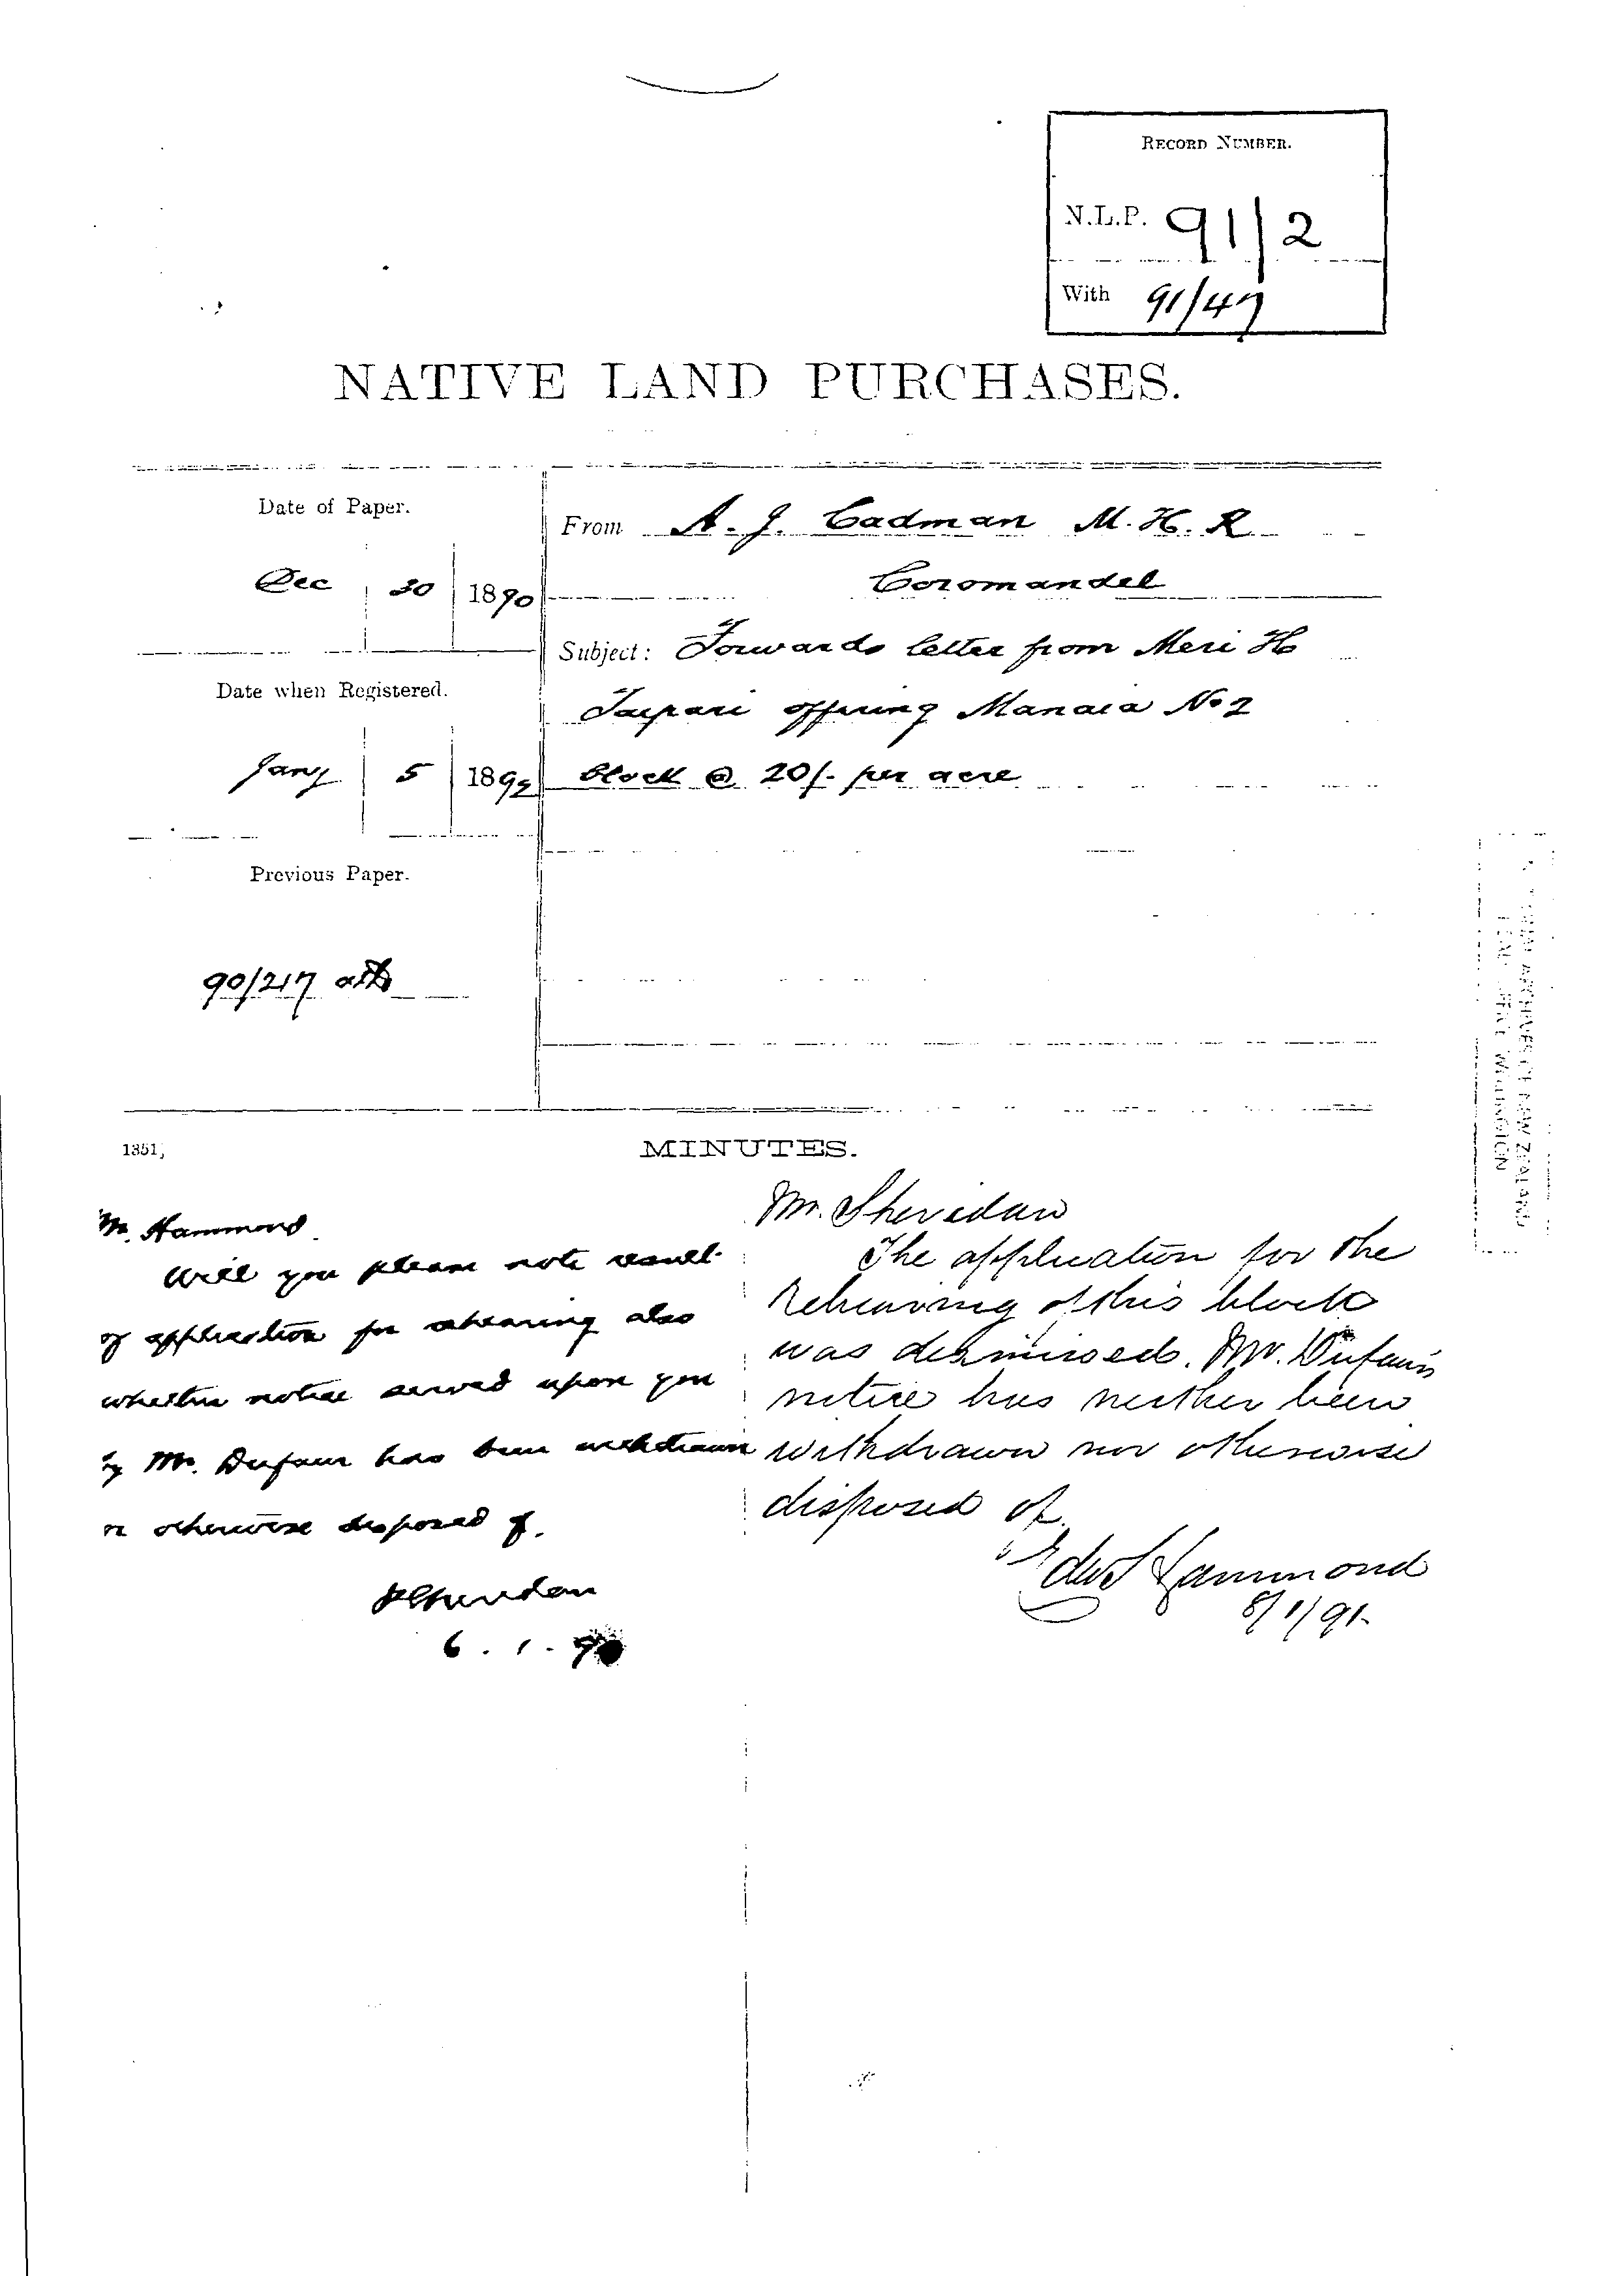 RECORD NUMBER.
N.L.P. 91/2
With 91/47
NATIVE LAND PURCHASES.
Date of Paper.
Dec 30 1890
From A. J. Cadman M. H. R
Coromandel
Subject: Forwards letter from Meri H
Taipari offering Manaia No 2
block @ 20/- per acre
Date when Registered.
Jany 5 189
Previous Paper.
90/217
1351,
MINUTES.
Mr. Hammond
Will you please note result
of application for rehearing also
whether notice served upon you
by Mr. Dufaur has been withdrawn
or otherwise disposed of.
6.1.
Mr. Sheridan
The application for the
Rehearing of this block
was dismissed. Mr. Dufaur's
notice has neither been
withdrawn nor otherwise
disposed of.
Hammond
8/1/91.